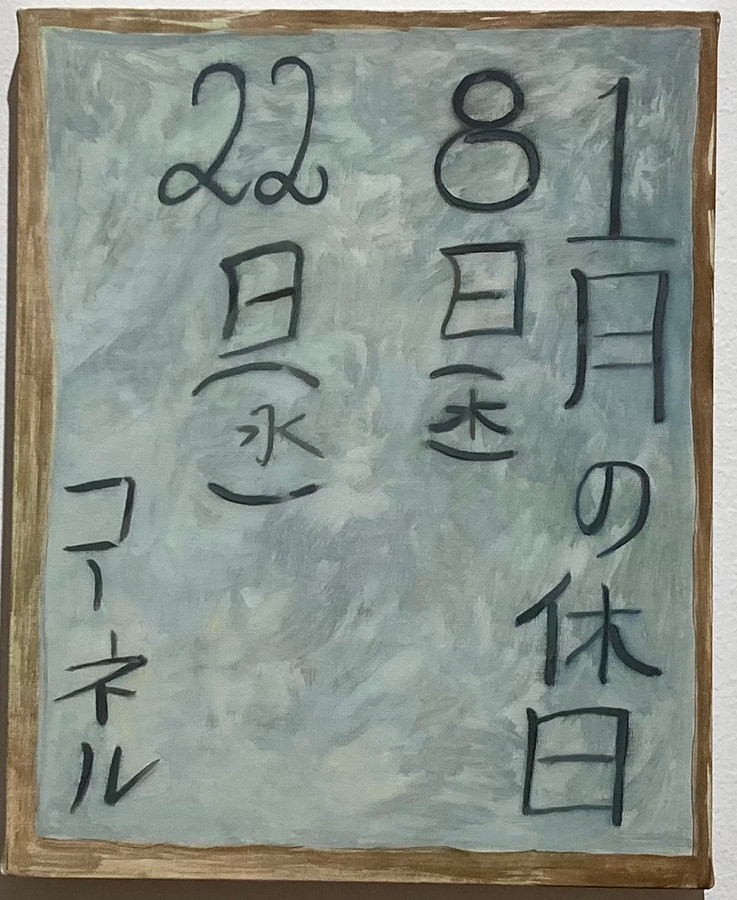 1月の休日
8日(水)
22日(水)
コーネル